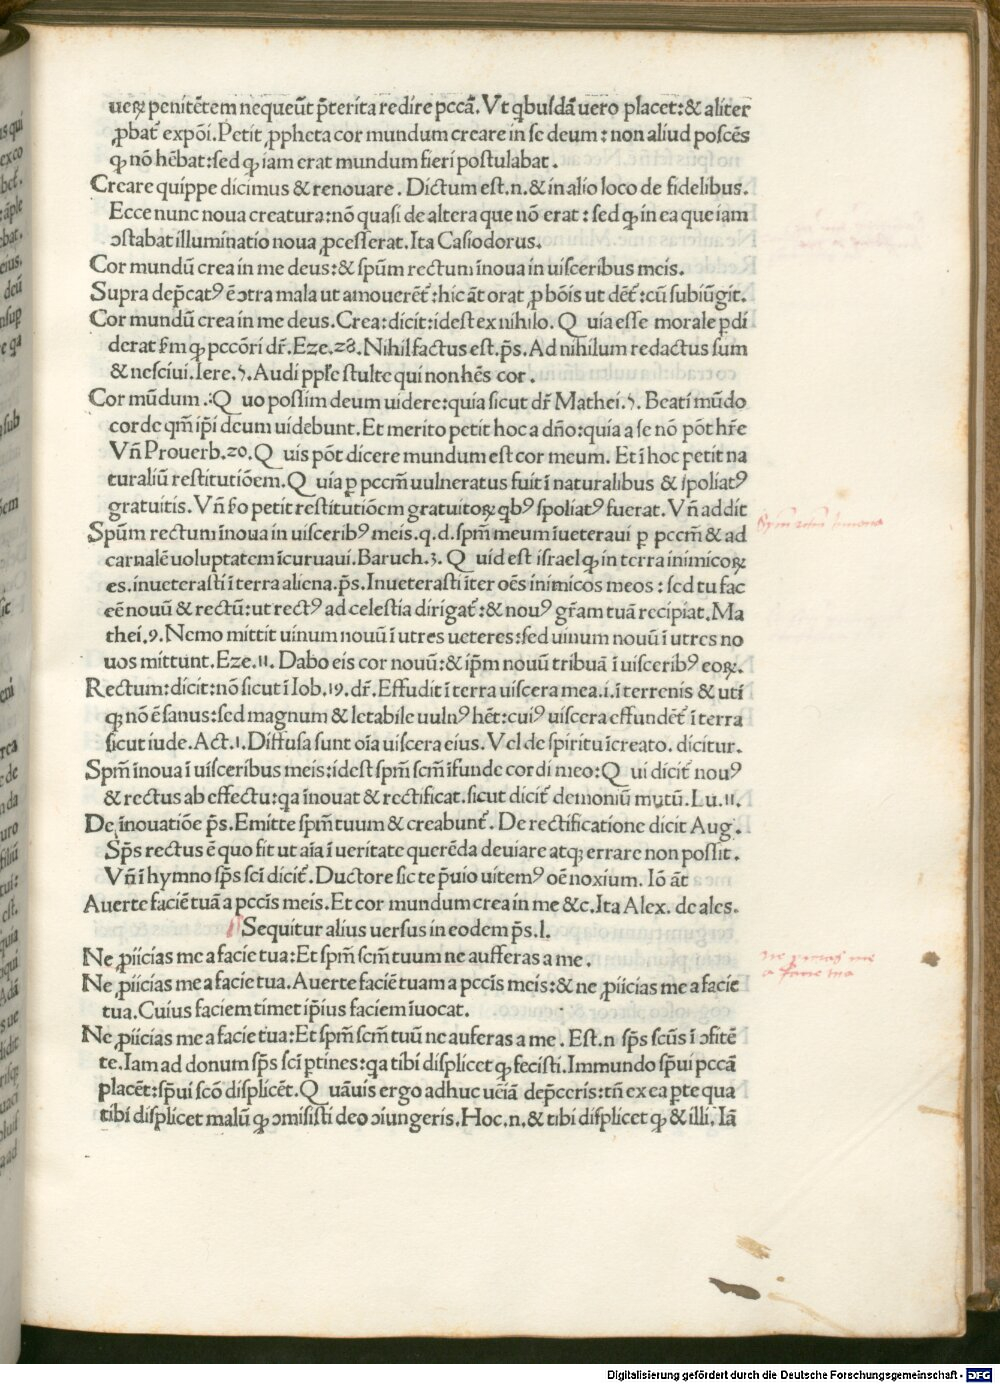 ueꝝ penitētem nequeūt p̄terita redire pccā. Vt qbusdā uero placet: & aliter
ꝓbat᷑ expōi. Petit ꝓpheta cor mundum creare in se deum: non aliud poscēs
ꝙ nō hēbat: sed ꝙ iam erat mundum fieri postulabat.
Creare quippe dicimus & renouare. Dictum est .n. & in alio loco de fidelibus.
Ecce nunc noua creatura: nō quasi de altera que nō erat: sed ꝙ in ea que iam
ↄstabat illuminatio noua ꝓcesserat. Ita Casiodorus.
Cor mundū crea in me deus: & spūm rectum īnoua in uisceribus meis.
Supra dep̄catꝰ ē ↄtra mala ut amouerēt᷑: hic āt orat ꝓ bōis ut dēt᷑: cū subiūgit.
Cor mundū crea in me deus. Crea: dicit: id est ex nihilo. Q uia esse morale ꝑdi
derat ẜm ꝙ pccōri dr̄. Eze. 28. Nihil factus est. p̄s. Ad nihilum redactus sum
& nesciui. Iere. 5. Audi ppl̄e stulte qui non hēs cor.
Cor mūdum .: Q uo possim deum uidere: quia sicut dr̄ Mathei. 5. Beati mūdo
corde qm̄ ip̄i deum uidebunt. Et merito petit hoc a dn̄o: quia a se nō pōt hr̄e
Vn̄ Prouerb. 20. Q uis pōt dicere mundum est cor meum. Et ī hoc petit na
turaliū restitutiōem. Q uia ꝑ pccm̄ uulneratus fuit ī naturalibus & spoliatꝰ
gratuitis. Vn̄ ẜo petit restitutiōem gratuitoꝝ qbꝰ spoliatꝰ fuerat. Vn̄ addit
Spūm rectum īnoua in uisceribꝰ meis. q. d. spm̄ meum īueteraui ꝑ pccm̄ & ad
carnalē uoluptatem īcuruaui. Baruch. 3. Q uid est israel ꝙ in terra inimicoꝝ
es. inueterasti ī terra aliena. p̄s. Inueterasti īter oēs inimicos meos: sed tu fac
eē nouū & rectū: ut rectꝰ ad celestia dirigat᷑: & nouꝰ gr̄am tuā recipiat. Ma
thei. 9. Nemo mittit uinum nouū ī utres ueteres: sed uinum nouū ī utres no
uos mittunt. Eze. 11. Dabo eis cor nouū: & ip̄m nouū tribuā ī uisceribꝰ eoꝝ.
Rectum: dicit: nō sicut ī Iob. 19. dr̄. Effudit ī terra uiscera mea .i. ī terrenis & uti
ꝙ nō ē sanus: sed magnum & letabile uulnꝰ hēt: cuiꝰ uiscera effundēt᷑ ī terra
sicut iude. Act. 1. Diffusa sunt oīa uiscera eius. Vel de spiritu īcreato. dicitur.
Spm̄ īnoua ī uisceribus meis: id est spm̄ scm̄ īfunde cordi meo: Q ui dicit᷑ nouꝰ
& rectus ab effectu: qa īnouat & rectificat. sicut dicit᷑ demoniū mutū. Lu. 11.
De īnouatiōe p̄s. Emitte spm̄ tuum & creabunt᷑. De rectificatione dicit Aug.
Sp̄s rectus ē quo fit ut aīa ī ueritate querēda deuiare atqꝫ errare non possit.
Vn̄ ī hymno sp̄s sc̄i dicit᷑. Ductore sic te p̄uio uitemꝰ oē noxium. Iō āt
Auerte faciē tuā a pccīs meis. Et cor mundum crea in me &c. Ita Alex. de ales.
Sequitur alius uersus in eodem p̄s. l.
Ne ꝓiicias me a facie tua: Et spm̄ scm̄ tuum ne aufferas a me.
Ne ꝓiicias me a facie tua. Auerte faciē tuam a pccīs meis: & ne ꝓiicias me a facie
tua. Cuius faciem timet ip̄ius faciem īuocat.
Ne ꝓiicias me a facie tua: Et spm̄ scm̄ tuū ne auferas a me. Est .n sp̄s scūs ī ↄfitē
te. Iam ad donum sp̄s sc̄i ꝑtines: qa tibi displicet ꝙ fecisti. Immundo sp̄ui pccā
placēt: sp̄ui scō displicēt. Q uāuis ergo adhuc ueīā dep̄ceris: tn̄ ex ea ꝑte qua
tibi displicet malū ꝙ ↄmisisti deo ↄiungeris. Hoc .n. & tibi displicet ꝙ & illi. Iā
ne proicias me
a facie tua
Digitalisierung gefördert durch die Deutsche Forschungsgemeinschaft - DFG